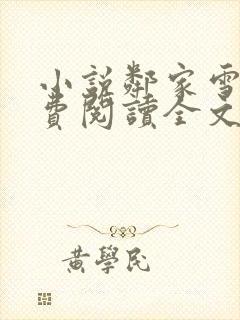 小說鄰家雪
費閱讀全文
黃學民